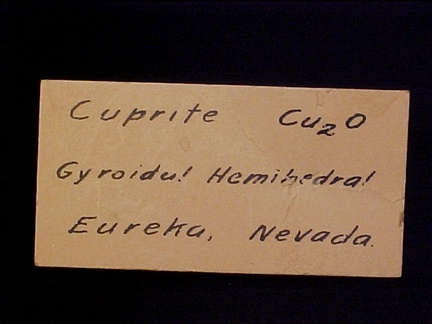 Cuprite Cu₂O
Gyroidal Hemihedral
Eureka, Nevada.